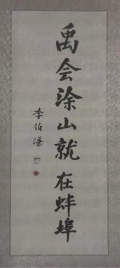 禹会涂山就在蚌埠
李伯谦